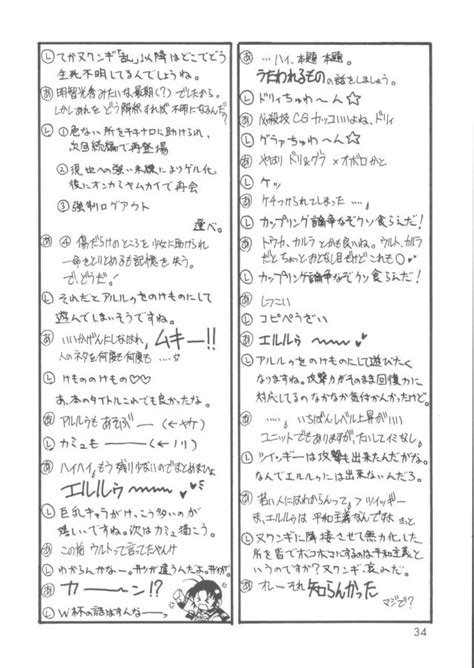 Ⓛ てかヌワンギ「乱」以降はどこでどう
生死不明してるんでしょうね。
あ 明智光秀みたいな最期(?)でしたから。
しかしあれをどう解釈すれば不明になるんだ?
Ⓛ ①危ない所をチキナロに助けられ、
次回続編で再登場
②現世への強い未練によりゲル化
後にオンカミヤムカイで再会
③強制ログアウト
選べ。
あ ④傷だらけのところを少女に助けられ
一命をとりとめるも記憶を失う。
で、どうだ!
Ⓛ それだとアルルゥをのけものにして
遊んでしまいそうですね。
あ いいかげんにしなはれ、ムキー!!
人のネタを何度も何度も‥‥
Ⓛ けもののけもの♡♡
お、本のタイトルこれでも良かったな。
あ アルルゥもあそぶ―― (←ヤケ)
Ⓛ カミュも――― (←ノリ)
あ ハイハイ。もう残り少ないのでまとめましょ
エルルゥ~~~♥
Ⓛ 巨乳キャラがけっこう多いのが
嬉しいですね。次はカミュ描こう。
あ この前ウルトって言ってたやんけ
Ⓛ わからんかなー。
あ カ―――ン!?
Ⓛ W杯の話はすんな――
あ …ハイ、本題 本題。
うたわれるものの話をしましょう。
Ⓛ ドリィちゅわ~ん☆
あ 必殺技CGカッコいいよね、ドリィ
Ⓛ グラァちゅわ~ん☆
あ やはりドリ&グラ×オボロかと
Ⓛ ケッ
あ ケチつけられてしまった‥‥
Ⓛ カップリング論争なぞクソ食らえだ!
あ トウカ、カルラとかも良いね。ウルト、カルラ
だとちょっとおとなし目だけどこれも〇♥
Ⓛ カップリング論争なぞクソ食らえだ!
あ しつこい
Ⓛ コピペうざい
あ エルルゥ~~~♥
Ⓛ アルルゥをのけものにして遊びたく
なりますね。攻撃力がそのまま回復力に
対応してるのなかなか気付かんかったけど。
あ ‥‥。いちばんレベル上昇がいい
ユニットでもありますが、たいしてイミなし。
Ⓛ ツイッギーは攻撃も出来たんだがな。
なんでエルルゥには出来ないんだろ。
あ 若い人にはわからんって。ツイッギー
ま、エルルゥは平和主義なんですよ きっと
Ⓛ ヌワンギに隣接させて無力化した
所を皆でボコボコにするのは平和主義と
いうのですか?ヌワンギ、哀れだ。
あ オレーそれ知らんかった
マジで?
34